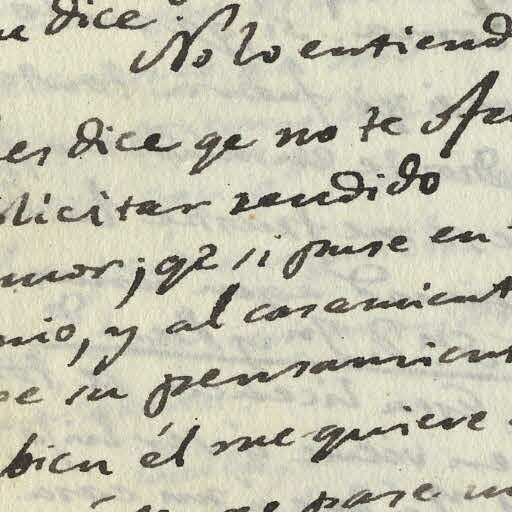 dice:
No lo entiend
es dice qe no te ofe
licitar rendido
mor; qe si puse en
mio, y al casamient
se su pensamient
bien él me quiere
pase